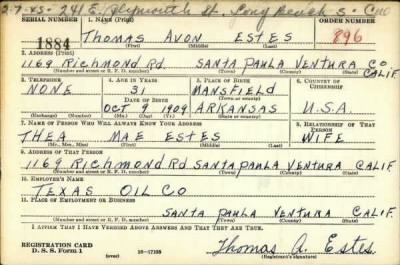 2-7-45- 241 E. Plymouth St. Long Beach 5- Cal
SERIAL NUMBER 1. NAME (Print) ORDER NUMBER
1884 THOMAS AVON ESTES 896
(First) (Middle) (Last)
2. ADDRESS (Print)
1169 RICHMOND RD. SANTA PAULA VENTURA CO CALIF.
(Number and street or R. F. D. number) (Town) (County) (State)
3. TELEPHONE 4. AGE IN YEARS 5. PLACE OF BIRTH 6. COUNTRY OF CITIZENSHIP
NONE 31 MANSFIELD
DATE OF BIRTH (Town or county)
OCT 9 1909 ARKANSAS U.S.A.
(Mo.) (Day) (Yr.) (State or country)
7. NAME OF PERSON WHO WILL ALWAYS KNOW YOUR ADDRESS 8. RELATIONSHIP OF THAT PERSON
THEA MAE ESTES WIFE
(Mr., Mrs., Miss) (First) (Middle) (Last)
9. ADDRESS OF THAT PERSON
1169 RICHMOND RD SANTA PAULA VENTURA CALIF.
(Number and street or R. F. D. number) (Town) (County) (State)
10. EMPLOYER'S NAME
TEXAS OIL CO
11. PLACE OF EMPLOYMENT OR BUSINESS
SANTA PAULA VENTURA CALIF.
(Number and street or R. F. D. number) (Town) (County) (State)
I AFFIRM THAT I HAVE VERIFIED ABOVE ANSWERS AND THAT THEY ARE TRUE.
REGISTRATION CARD
D. S. S. Form 1 (over) 16-17105 Thomas A. Estes
(Registrant's signature)